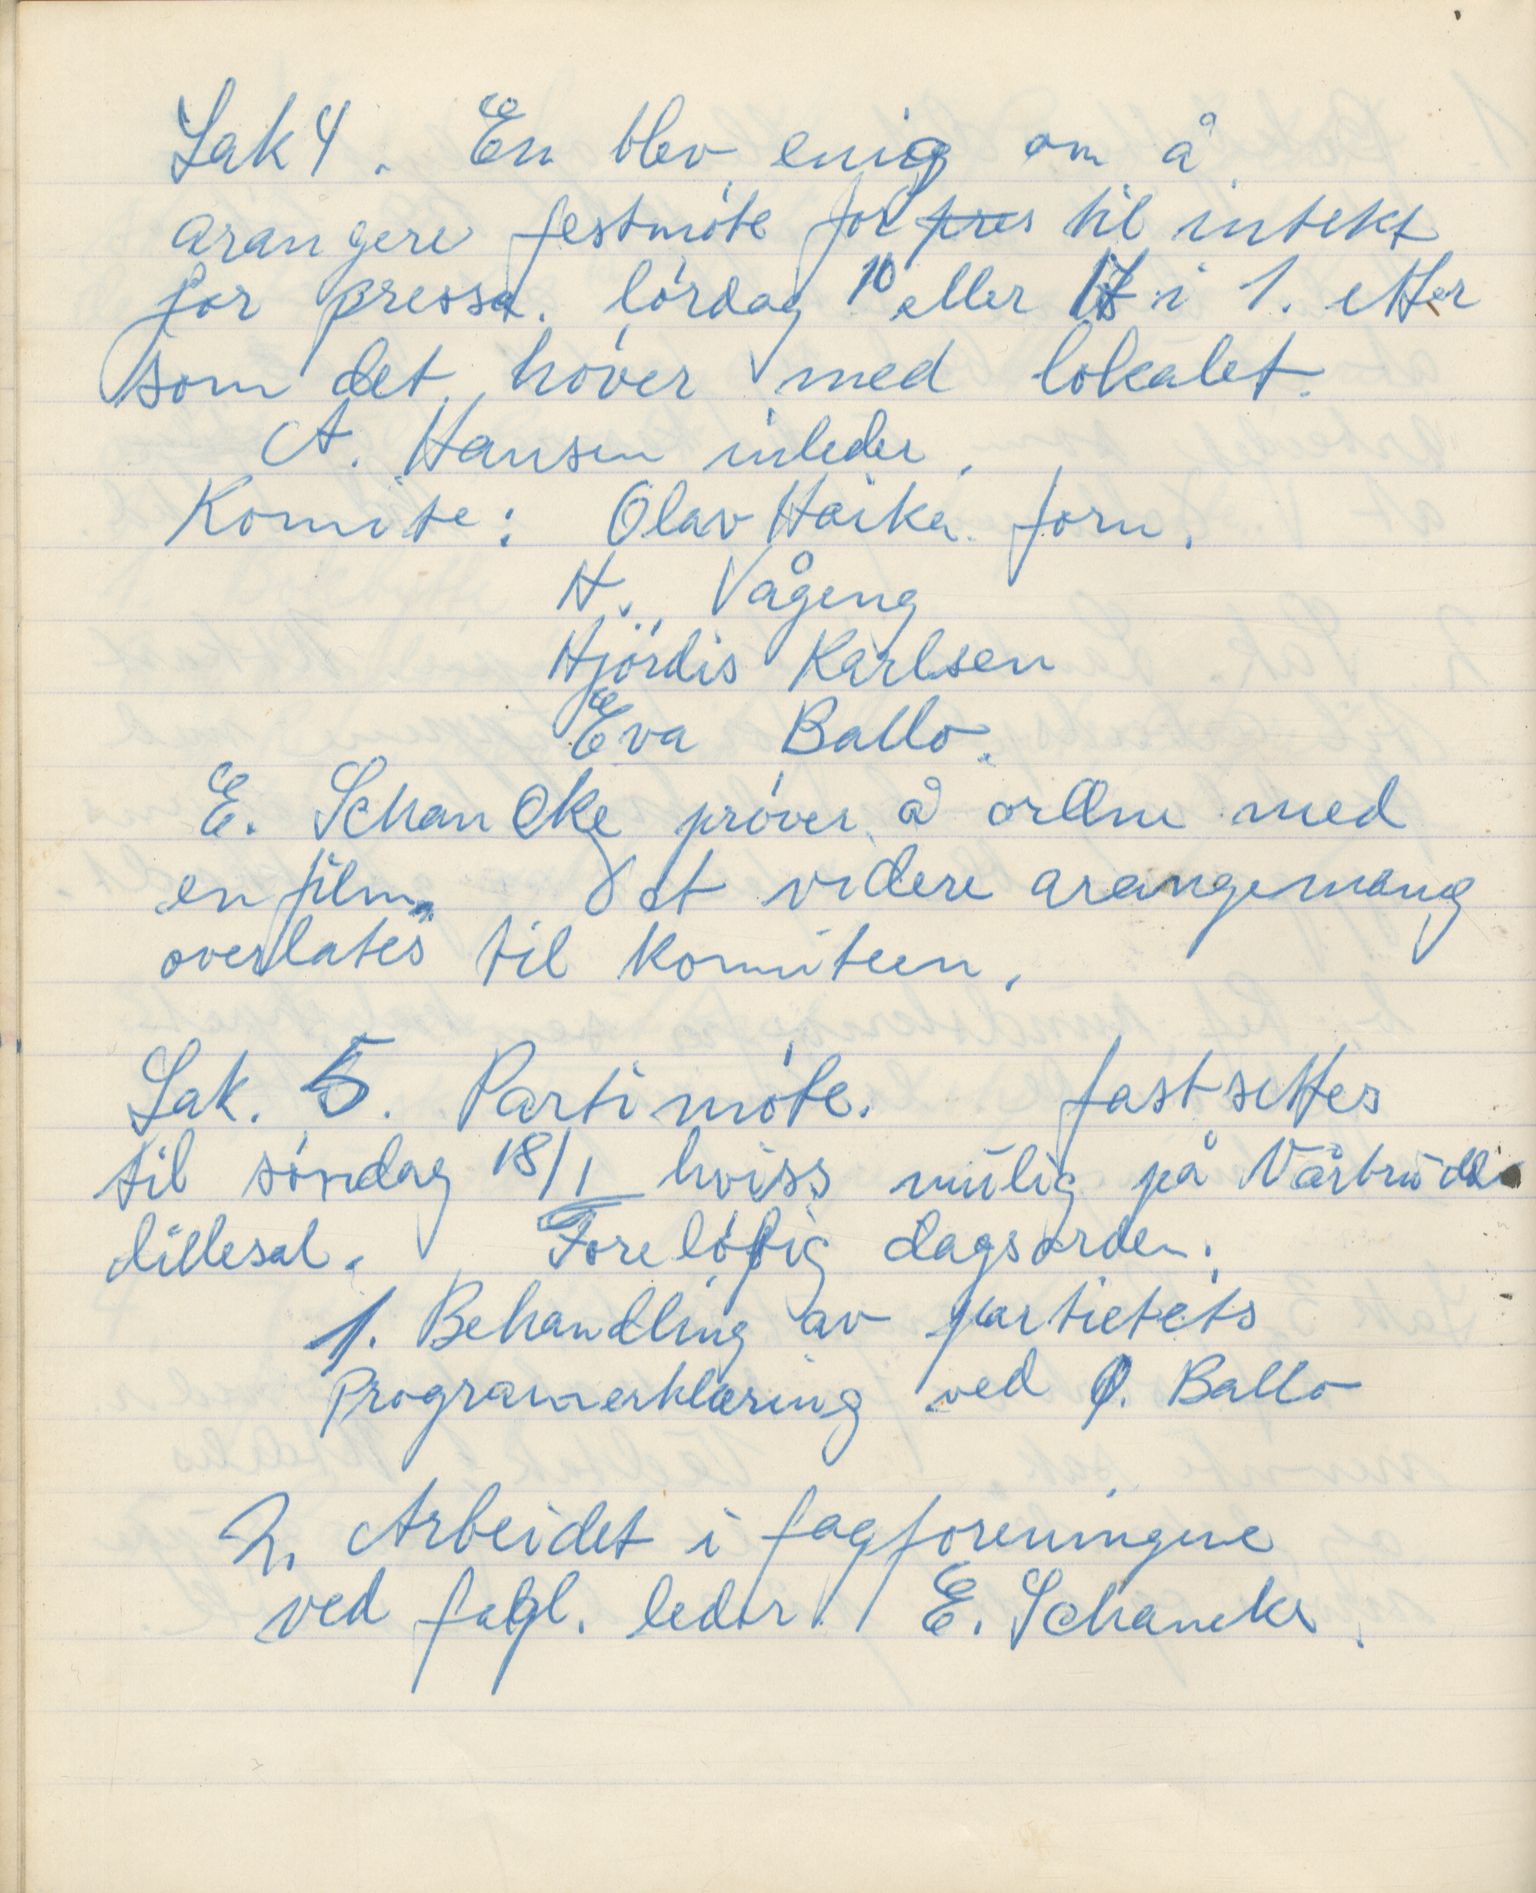 Sak 4. En blev enig om å
arangere festmöte for pres til intekt
for pressa. lördag 10 eller 17 i 1. etter
som det höver med lokalet.
A. Hansen inleder.
Komite: Olav Haika form.
H. Vågeng
Hjördis Karlsen
Eva Ballo.
E. Schancke pröver å ordne med
en film. Det videre arangemang
overlates til komiteen.
Sak. 5. Partimöte. fastsettes
til söndag 18/1 hviss mulig på Vårbrudd
lillesal. Forelöpig dagsorden.
1. Behandling av partietets
Programerklæring ved Ø. Ballo
2. Arbeidet i fagforeningene
ved fagl. leder. E. Schancke.